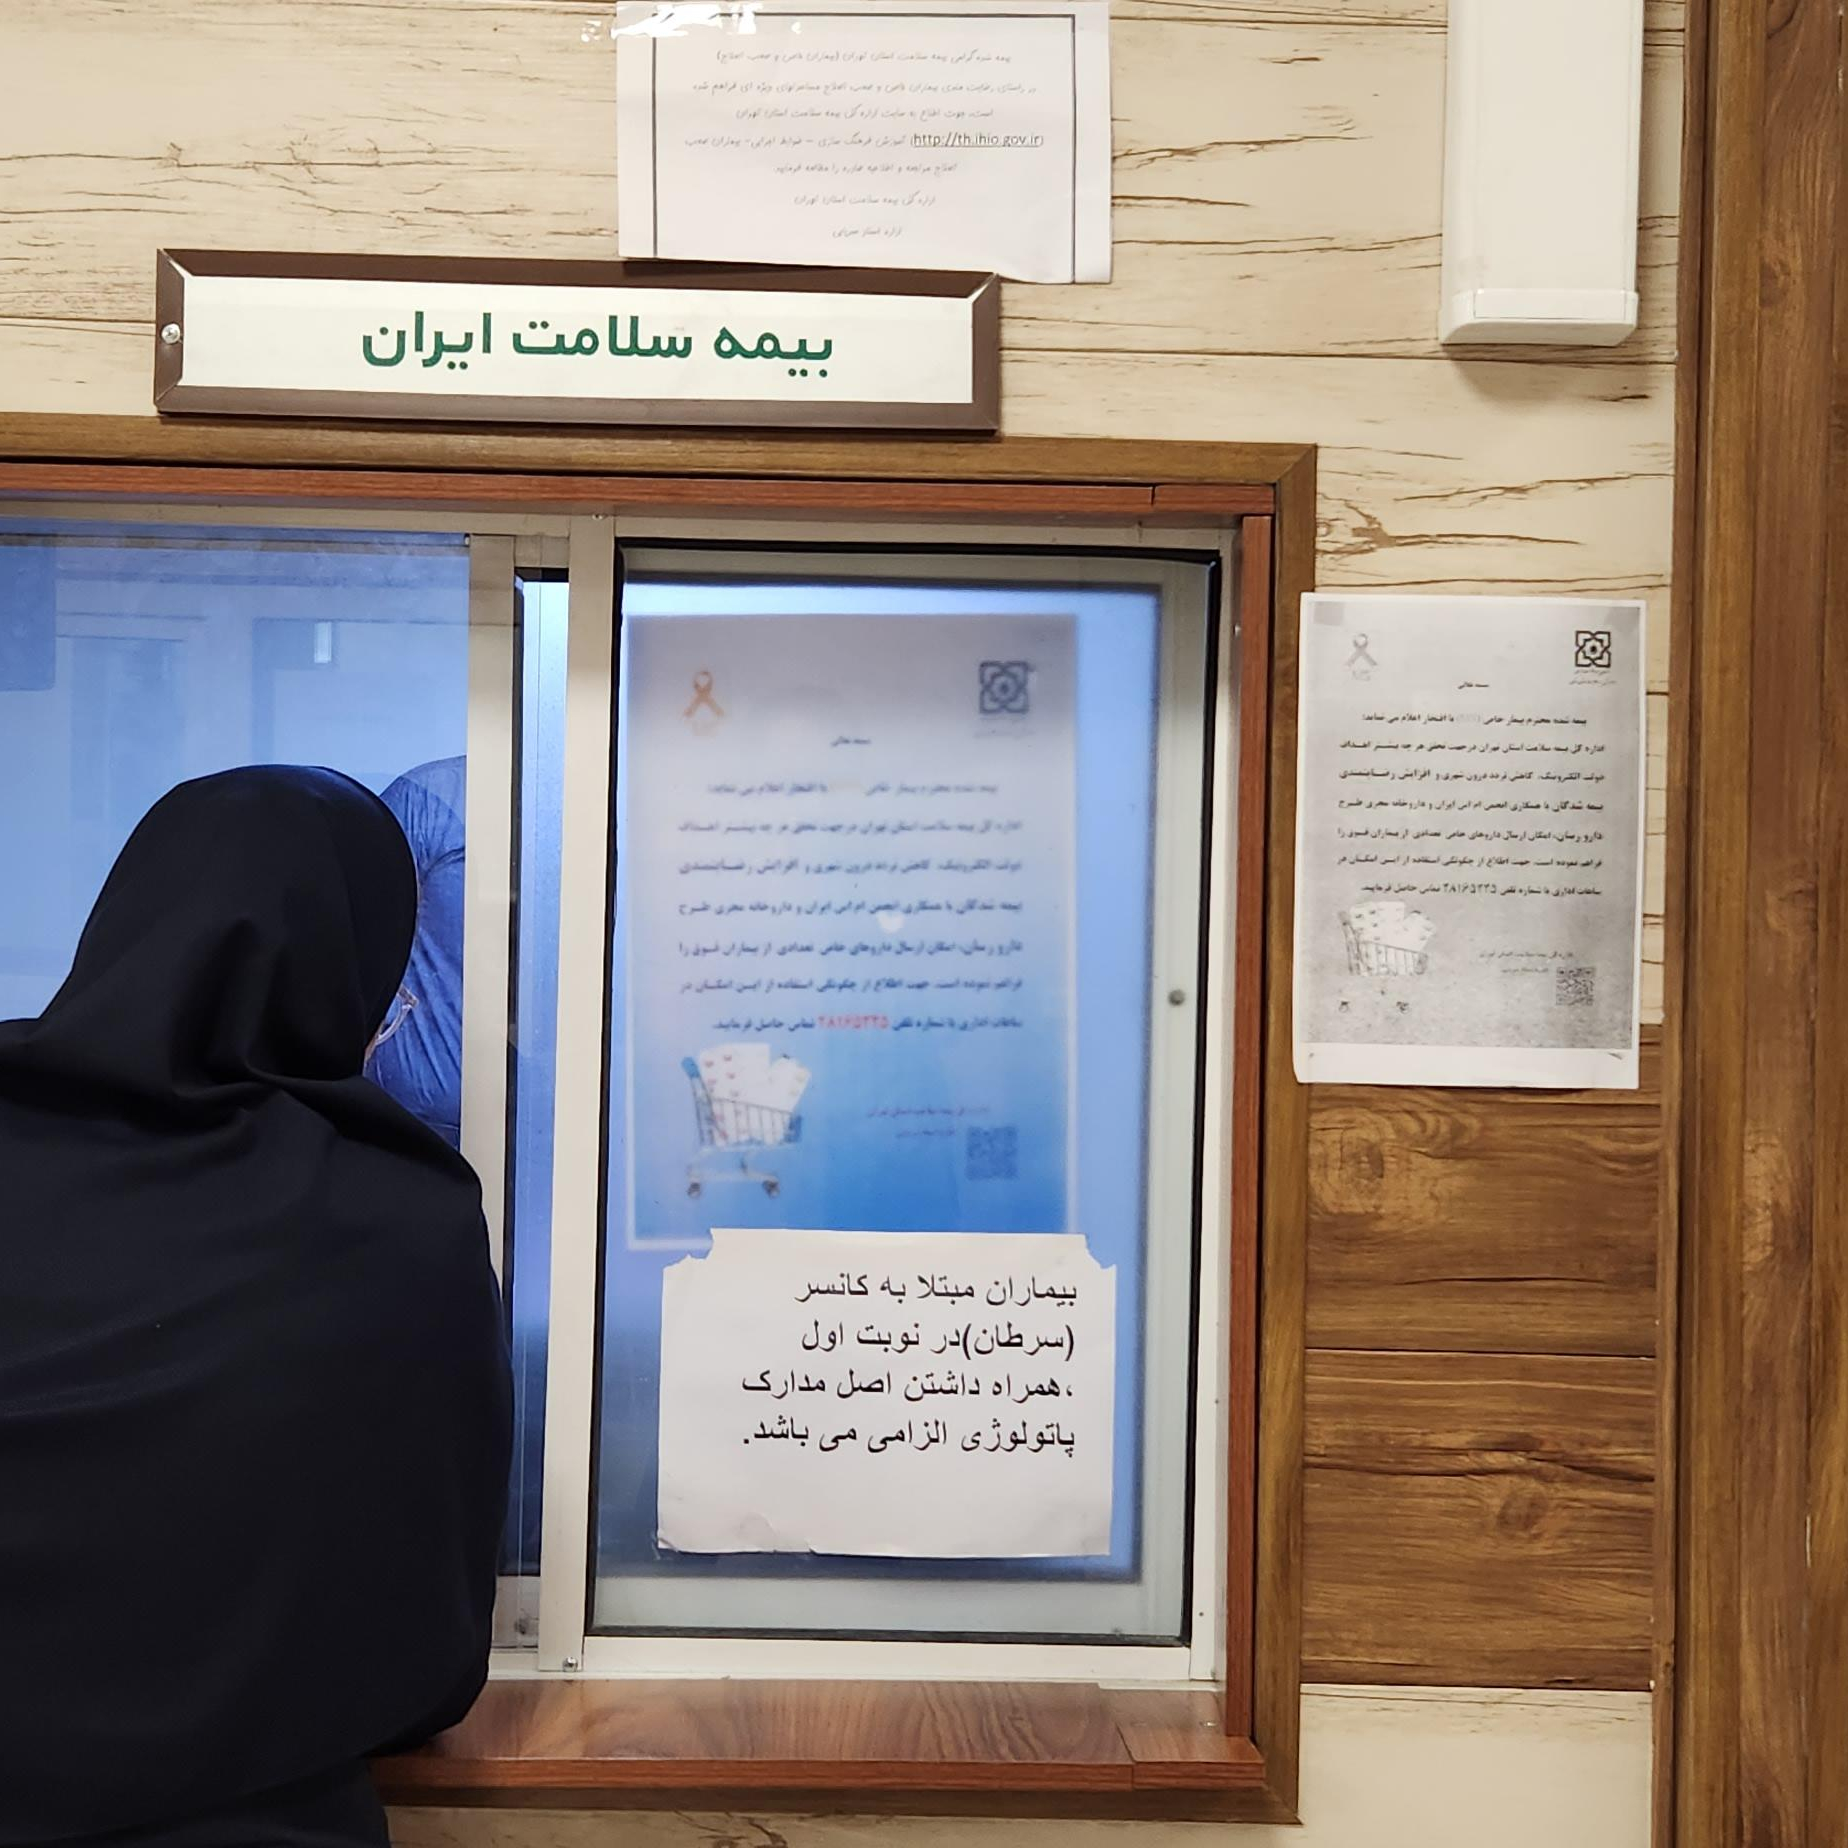 بیمه شده گرامی بیمه سلامت استان تهران (بیماران خاص و صعب العلاج)
در راستای رضایت مندی بیماران خاص و صعب العلاج مساعدتهای ویژه ای فراهم شده
است. جهت اطلاع به سایت اداره کل بیمه سلامت استان تهران
(http://th.ihio.gov.ir) آموزش فرهنگ سازی - ضوابط اجرایی - بیماران صعب
العلاج مراجعه و اطلاعیه صادره را مطالعه فرمایید.
اداره کل بیمه سلامت استان تهران
اداره اسناد
بیمه سلامت ایران
بسمه تعالی
بیمه شده محترم بیمار خاص با افتخار اعلام می نماید:
اداره کل بیمه سلامت استان تهران درجهت تحقق هر چه بیشتر اهداف
دولت الکترونیک، کاهش تردد درون شهری و افزایش رضایتمندی
بیمه شدگان با همکاری انجمن ام اس ایران و داروخانه مجری طرح
دارو رسان، امکان ارسال داروهای خاص تعدادی از بیماران فوق را
فراهم نموده است. جهت اطلاع از چگونگی استفاده از این امکان در
ساعات اداری با شماره تلفن ۲۸۱۶۵۲۳۵ تماس حاصل فرمایید.
اداره کل بیمه سلامت استان تهران
بیماران مبتلا به کانسر
(سرطان)در نوبت اول
،همراه داشتن اصل مدارک
پاتولوژی الزامی می باشد.
بسمه تعالی
بیمه شده محترم بیمار خاص با افتخار اعلام می نماید:
اداره کل بیمه سلامت استان تهران درجهت تحقق هر چه بیشتر اهداف
دولت الکترونیک، کاهش تردد درون شهری و افزایش رضایتمندی
بیمه شدگان با همکاری انجمن ام اس ایران و داروخانه مجری طرح
دارو رسان، امکان ارسال داروهای خاص تعدادی از بیماران فوق را
فراهم نموده است. جهت اطلاع از چگونگی استفاده از این امکان در
ساعات اداری با شماره تلفن ۲۸۱۶۵۲۳۵ تماس حاصل فرمایید.
اداره کل بیمه سلامت استان تهران